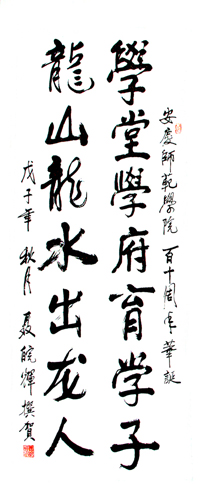 安慶師範學院 百十周年華誕
學堂學府育學子
龍山龍水出龙人
戊子年 秋月 聂皖輝撰賀